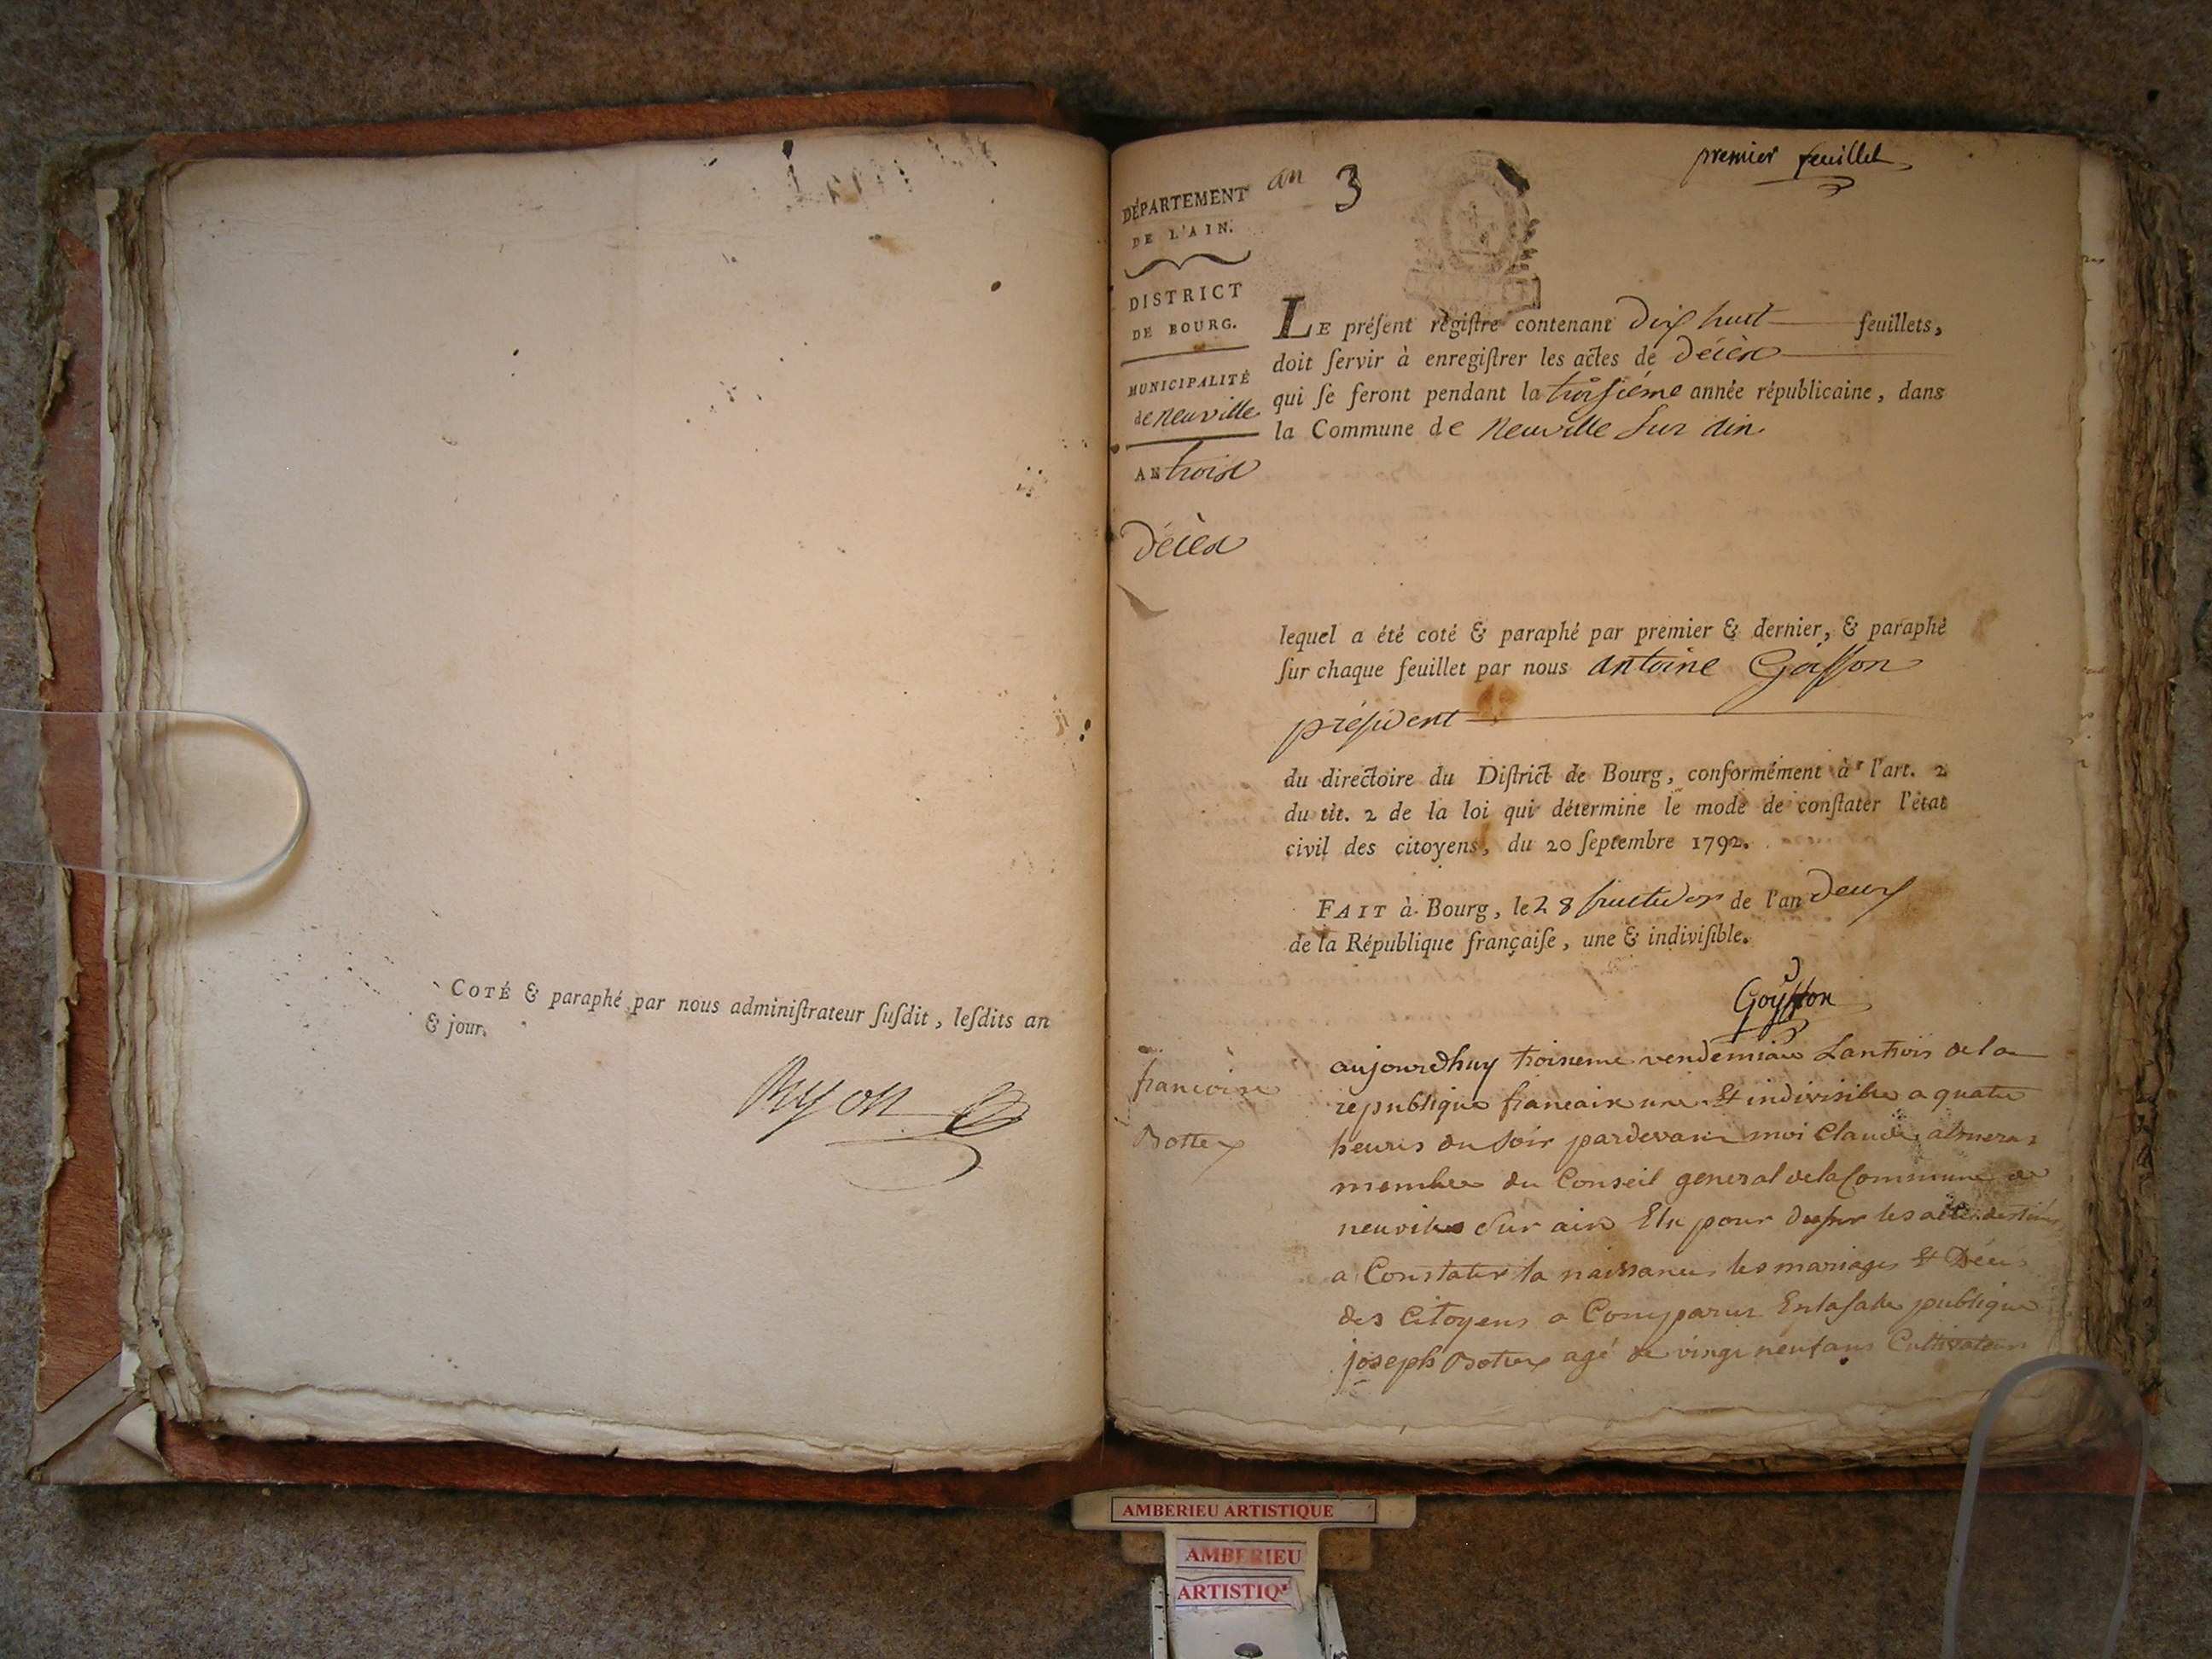 COTÉ & paraphé par nous administrateur susdit, lesdits an
& jour.
Ryon
premier feuillet
an 3
DÉPARTEMENT
DE L'AIN.
DISTRICT
DE BOURG.
MUNICIPALITÉ
de neuville
AN trois
Décès
LE présent régistre contenant Dix huit feuillets,
doit servir à enregistrer les actes de Décès
qui se feront pendant la troisième année républicaine, dans
la Commune de Neuville Sur Ain.
lequel a été coté & paraphé par premier & dernier, & paraphé
sur chaque feuillet par nous antoine Goyffon
président
du directoire du District de Bourg, conformément à l'art. 2
du tit. 2 de la loi qui détermine le mode de constater l'état
civil des citoyens, du 20 septembre 1792.
FAIT à Bourg, le 28 fructidor de l'an Deux
de la République française, une & indivisible.
Goyffon
francoise
Bottex
aujourdhuy troisieme vendemiaire Lantrois de la
republique francaise une Et indivisible a quatre
heures du Soir pardevant moi Claude almeras
membre du Conseil general de la Commune de
neuville Sur ain Elu pour dresser les actes destinés
a Constater la naissance les mariages Et Déces
des Citoyens a Comparus En la salle publique
joseph Bottex agé de vingt neuf ans Cultivateur
AMBERIEU ARTISTIQUE
AMBERIEU
ARTISTIQUE